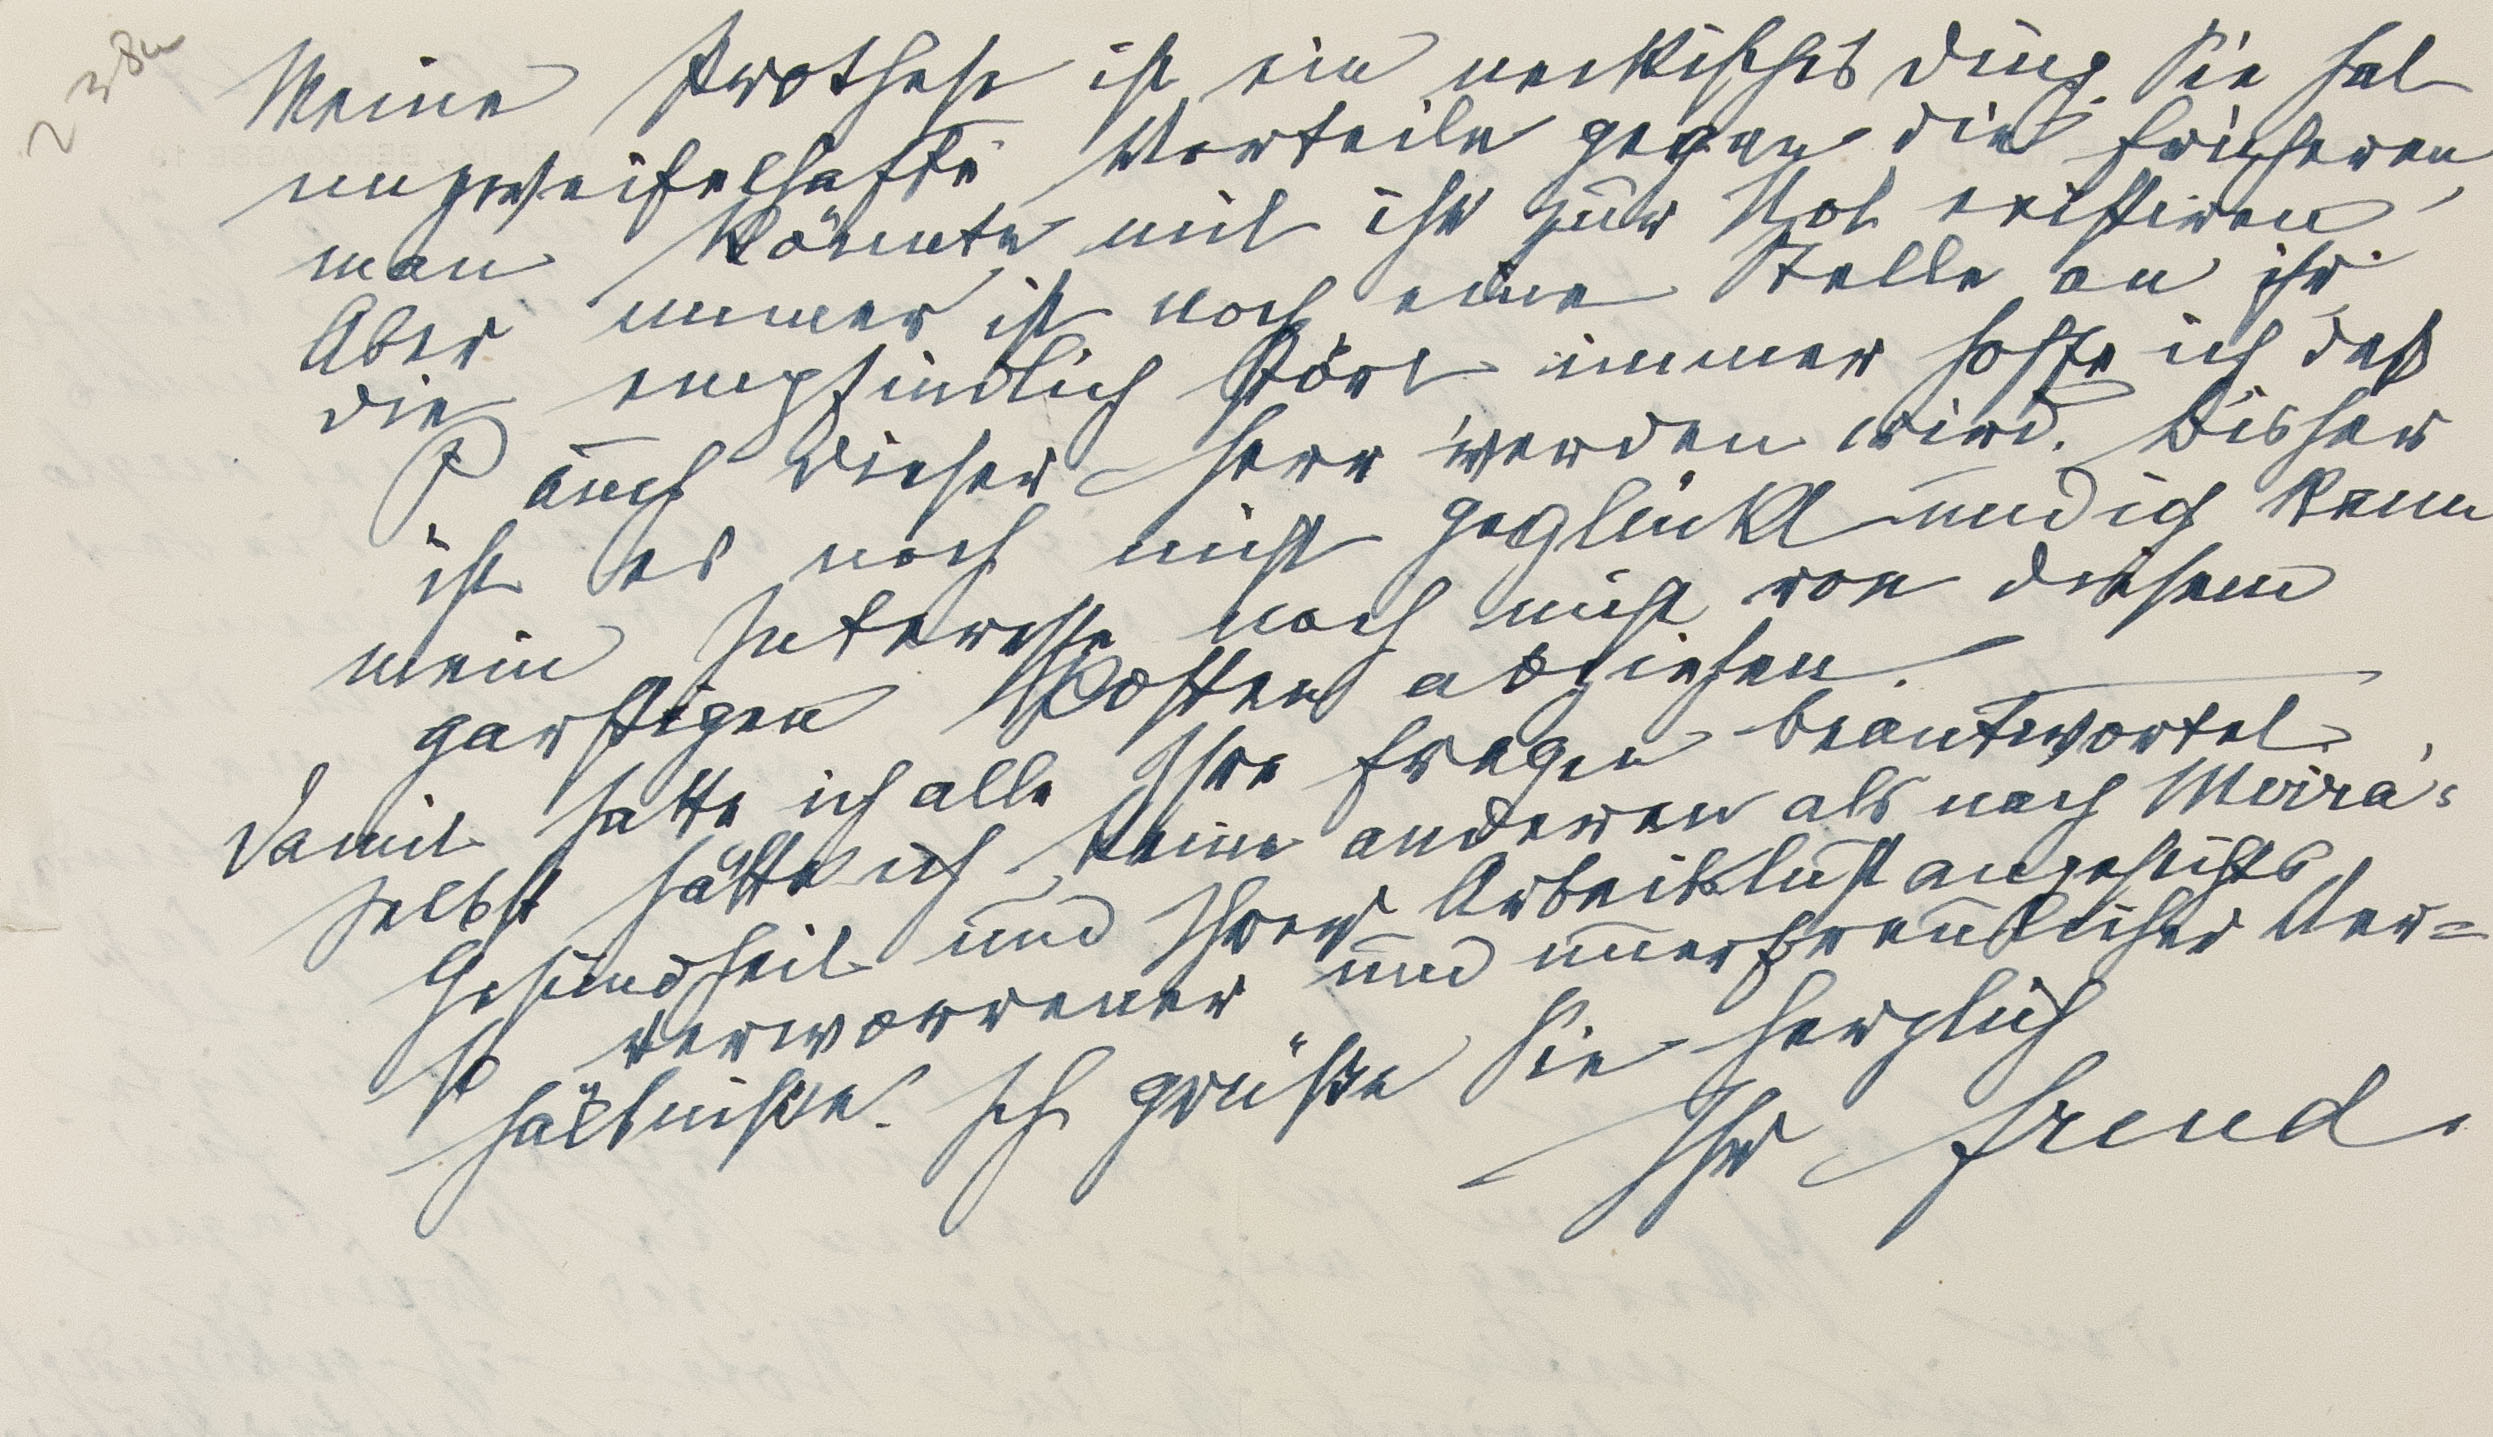 Meine Prothese ist ein neckisches Ding. Sie hat
unzweifelhafte Vorteile gegen die früheren,
man könnte mit ihr zur Not existiren.
Aber immer ist noch eine Stelle an ihr
die empfindlich stört immer hoffe ich daß
P auch dieser Herr werden wird. Bisher
ist es noch nicht geglückt und ich kann
mein Interesse noch nicht von diesem
garstigen Posten abziehen.
Damit hätte ich alle Ihre Fragen beantwortet.
Selbst hätte ich keine anderen als nach Moira's
Gesundheit und Ihrer Arbeitslust angesichts
so verworrener und unerfreulicher Ver=
hältnisse. Ich grüße Sie herzlich
Ihr Freud